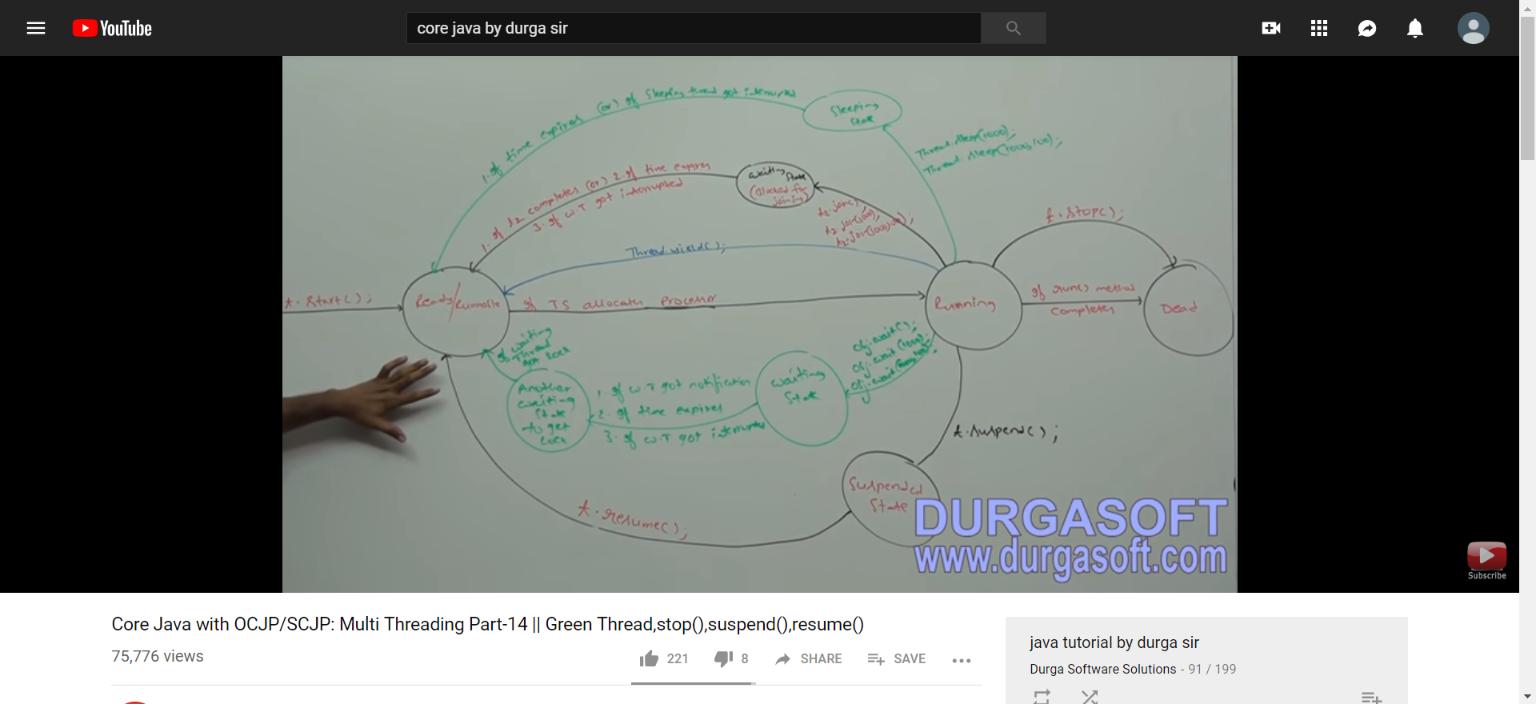 YouTube
core java by durga sir
1. If time expires (or) If sleeping thread got interrupted
Sleeping
State
Thread.sleep(1000);
Thread.sleep(1000,100);
1. If t2 completes (or) 2. If time expires
3. If W.T got interrupted
waiting
State
(Blocked for
joining)
t2.join(),
t2.join(1000),
t2.join(1000,100),
t.stop();
Thread.yield();
t.start();
Ready/Runnable
If TS allocates Processor
Running
If run() method
completes
Dead
If waiting
Thread
got lock
Another
waiting
State
to get
lock
1. If W.T got notification
2. If time expires
3. If W.T got interrupted
waiting
State
obj.wait();
obj.wait(1000);
t.suspend();
Suspended
State
t.resume();
DURGASOFT
www.durgasoft.com
Subscribe
Core Java with OCJP/SCJP: Multi Threading Part-14 || Green Thread,stop(),suspend(),resume()
75,776 views
221
8
SHARE
SAVE
java tutorial by durga sir
Durga Software Solutions - 91 / 199